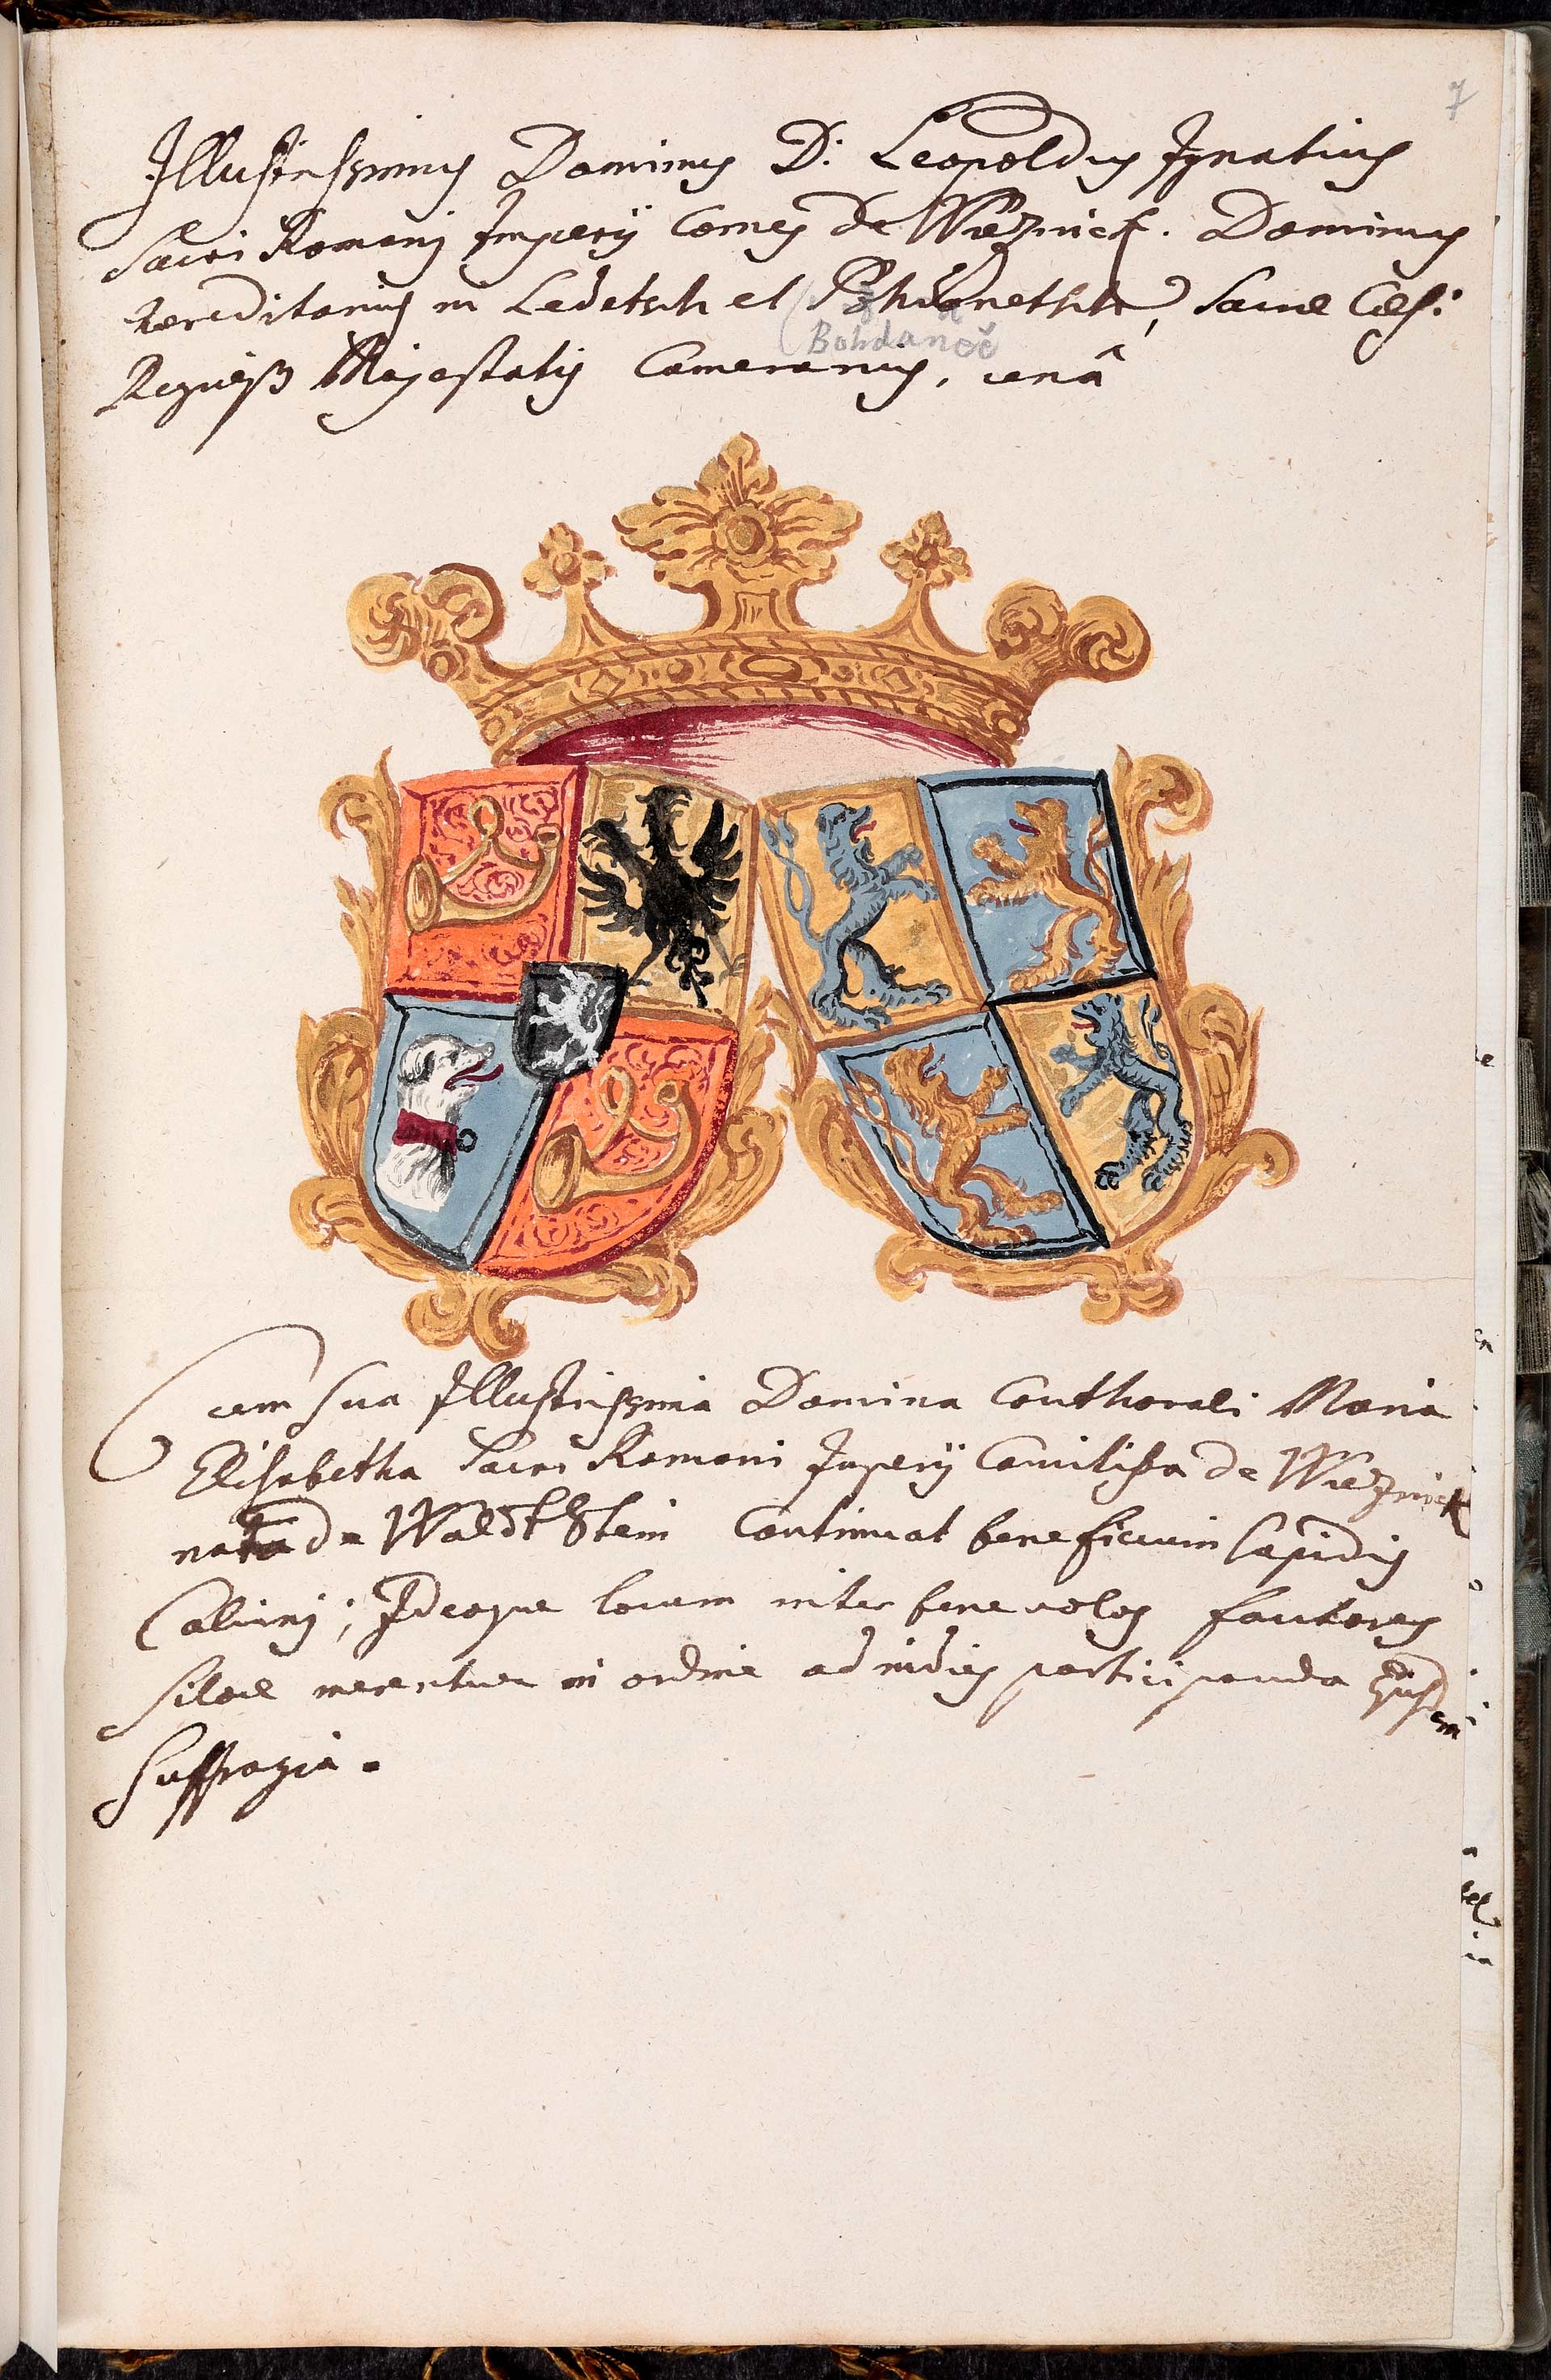 7
Illustrissimus Dominus D: Leopoldus Ignatius
Sacri Romani Imperij Comes de Wieznick. Dominus
hereditarius in Ledetsch et
Bohdaneč
Sacrae Caes:
Regiaeq3 Majestatis Camerarius, unâ
Cum sua Illustrissima Domina Conthorali Maria
Elisabetha Sacri Romani Imperij Comitissa de Wieznick
nata de WaldtStein Continuat beneficium Lapidis
Calcinij; Ideoque locum inter benevolos fautores
Siloae merentur in ordine ad indies participanda
Suffragia.